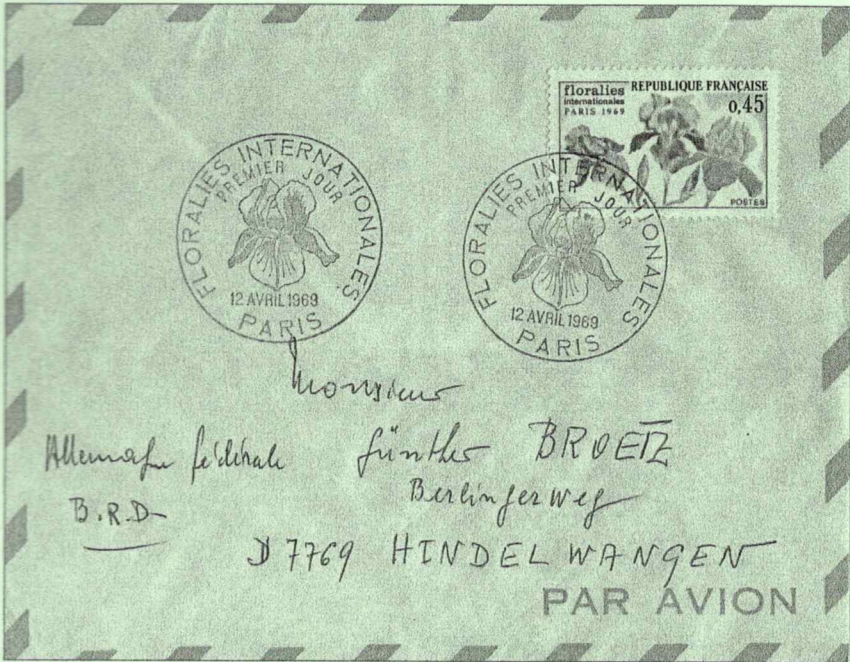 floralies
internationales
PARIS 1969
REPUBLIQUE FRANÇAISE
0,45
POSTES
FLORALIES INTERNATIONALES
PREMIER JOUR
12 AVRIL 1969
PARIS
FLORALIES INTERNATIONALES
PREMIER JOUR
12 AVRIL 1969
PARIS
Monsieur
Günther BROETZ
Allemagne fédérale
B.R.D-
Berlingerweg
D 7769 HINDELWANGEN
PAR AVION